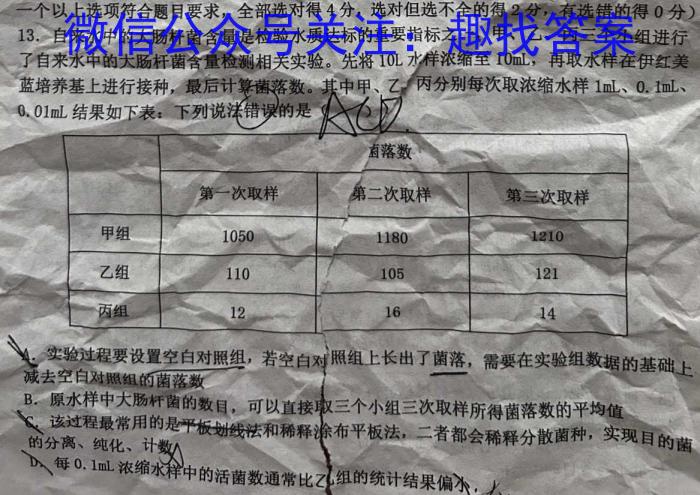 一个以上选项符合题目要求,全部选对得4分,选对但选不全的得2分,有选错的得0分)
微信公众号关注:趣找答案
13. 自来水中的大肠杆菌含量是检验水质达标的重要指标之一,甲、乙、丙三个小组进行
了自来水中的大肠杆菌含量检测相关实验。先将10L水样浓缩至10mL,再取水样在伊红美
蓝培养基上进行接种,最后计算菌落数。其中甲、乙、丙分别每次取浓缩水样1mL、0.1mL、
0.01mL结果如下表:下列说法错误的是
ACD
菌落数
第一次取样 第二次取样 第三次取样
甲组 1050 1180 1210
乙组 110 105 121
丙组 12 16 14
A. 实验过程要设置空白对照组,若空白对照组上长出了菌落,需要在实验组数据的基础上
减去空白对照组的菌落数
B. 原水样中大肠杆菌的数目,可以直接取三个小组三次取样所得菌落数的平均值
C. 该过程最常用的是平板划线法和稀释涂布平板法,二者都会稀释分散菌种,实现目的菌
的分离、纯化、计数
D. 每0.1mL浓缩水样中的活菌数通常比乙组的统计结果偏小